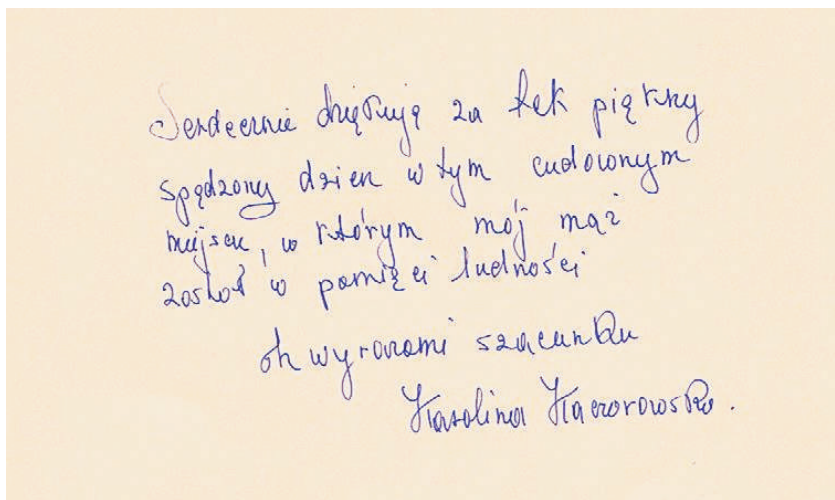 Serdecznie dziękuję za tak piękny
spędzony dzień w tym cudownym
miejscu, w którym mój mąż
został w pamięci ludności
z wyrazami szacunku
Karolina Kaczorowska.